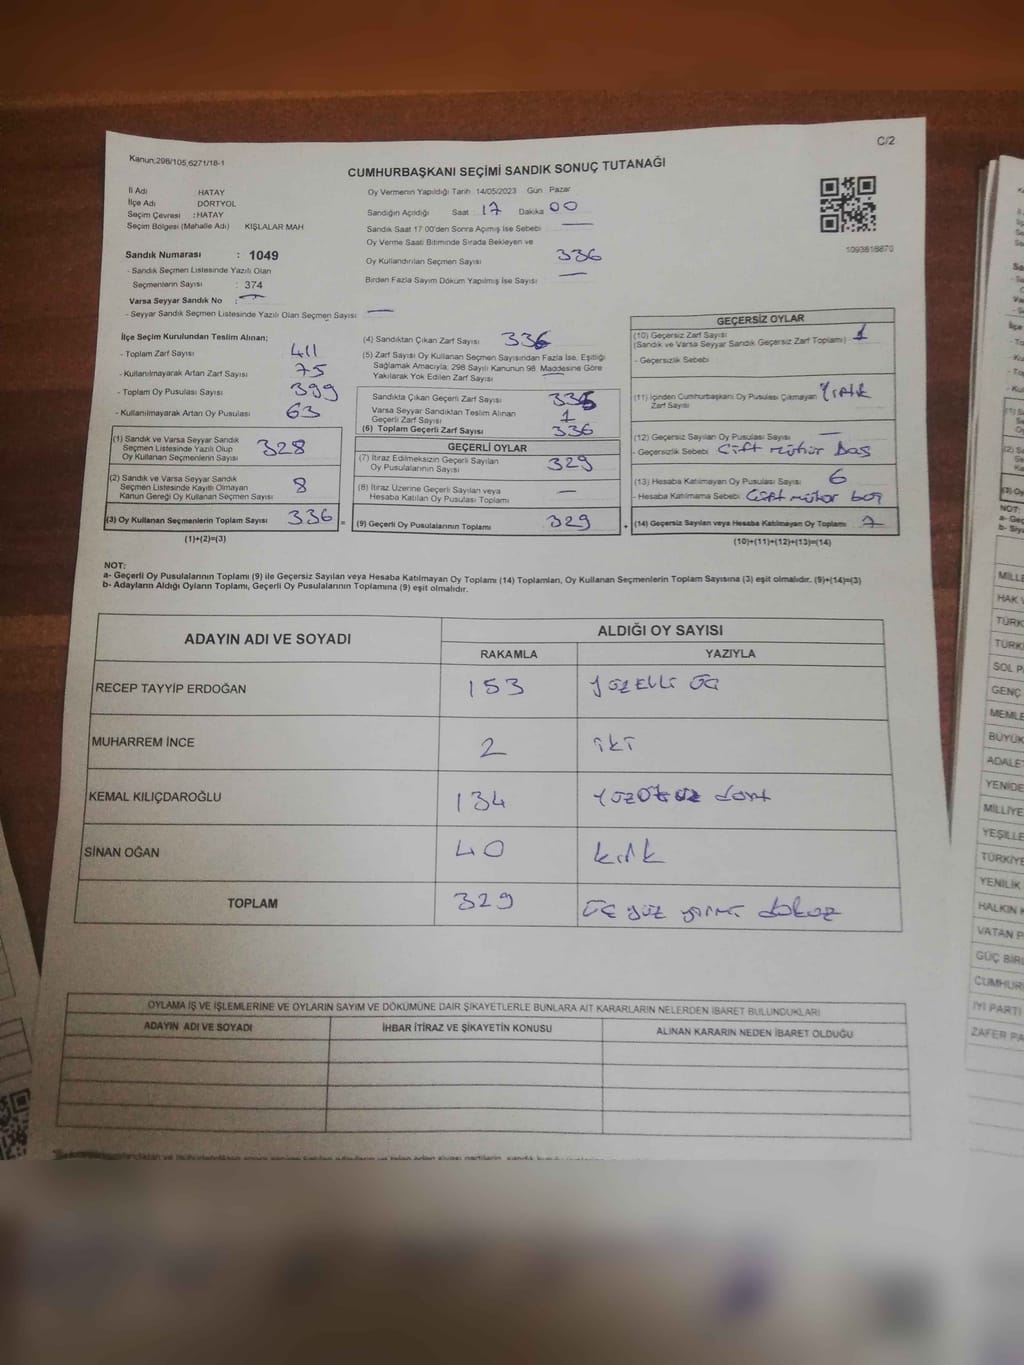 C/2
Kanun;298/105,6271/18-1
CUMHURBAŞKANI SEÇİMİ SANDIK SONUÇ TUTANAĞI
İl Adı HATAY
İlçe Adı DÖRTYOL
Seçim Çevresi :HATAY
Seçim Bölgesi (Mahalle Adı) KIŞLALAR MAH
Sandık Numarası : 1049
- Sandık Seçmen Listesinde Yazılı Olan
Seçmenlerin Sayısı : 374
Varsa Seyyar Sandık No : —
- Seyyar Sandık Seçmen Listesinde Yazılı Olan Seçmen Sayısı: —
Oy Vermenin Yapıldığı Tarih 14/05/2023 Gün Pazar
Sandığın Açıldığı Saat 17 Dakika 00
Sandık Saat 17:00'den Sonra Açımış İse Sebebi —
Oy Verme Saati Bitiminde Sırada Bekleyen ve
Oy Kullandırılan Seçmen Sayısı 336
Birden Fazla Sayım Döküm Yapılmış İse Sayısı —
1093618870
İlçe Seçim Kurulundan Teslim Alınan;
- Toplam Zarf Sayısı 411
- Kullanılmayarak Artan Zarf Sayısı 75
- Toplam Oy Pusulası Sayısı 399
- Kullanılmayarak Artan Oy Pusulası 63
(1) Sandık ve Varsa Seyyar Sandık
Seçmen Listesinde Yazılı Olup
Oy Kullanan Seçmenlerin Sayısı 328
(2) Sandık ve Varsa Seyyar Sandık
Seçmen Listesinde Kayıtlı Olmayan
Kanun Gereği Oy Kullanan Seçmen Sayısı 8
(3) Oy Kullanan Seçmenlerin Toplam Sayısı 336
(1)+(2)=(3)
(4) Sandıktan Çıkan Zarf Sayısı 336
(5) Zarf Sayısı Oy Kullanan Seçmen Sayısından Fazla İse, Eşitliği
Sağlamak Amacıyla; 298 Sayılı Kanunun 98. Maddesine Göre
Yakılarak Yok Edilen Zarf Sayısı —
Sandıkta Çıkan Geçerli Zarf Sayısı
Varsa Seyyar Sandıktan Teslim Alınan
Geçerli Zarf Sayısı 1
(6) Toplam Geçerli Zarf Sayısı 336
GEÇERLİ OYLAR
(7) İtiraz Edilmeksizin Geçerli Sayılan
Oy Pusulalarının Sayısı 329
(8) İtiraz Üzerine Geçerli Sayılan veya
Hesaba Katılan Oy Pusulası Toplamı —
= (9) Geçerli Oy Pusulalarının Toplamı 329
GEÇERSİZ OYLAR
(10) Geçersiz Zarf Sayısı
(Sandık ve Varsa Seyyar Sandık Geçersiz Zarf Toplamı) 1
- Geçersizlik Sebebi
(11) İçinden Cumhurbaşkanı Oy Pusulası Çıkmayan
Zarf Sayısı
(12) Geçersiz Sayılan Oy Pusulası Sayısı —
- Geçersizlik Sebebi Çift mühür Bas
(13) Hesaba Katılmayan Oy Pusulası Sayısı 6
- Hesaba Katılmama Sebebi Çift mühür
+ (14) Geçersiz Sayılan veya Hesaba Katılmayan Oy Toplamı 7
(10)+(11)+(12)+(13)=(14)
NOT:
a- Geçerli Oy Pusulalarının Toplamı (9) ile Geçersiz Sayılan veya Hesaba Katılmayan Oy Toplamı (14) Toplamları, Oy Kullanan Seçmenlerin Toplam Sayısına (3) eşit olmalıdır. (9)+(14)=(3)
b- Adayların Aldığı Oyların Toplamı, Geçerli Oy Pusulalarının Toplamına (9) eşit olmalıdır.
ADAYIN ADI VE SOYADI ALDIĞI OY SAYISI
RAKAMLA YAZIYLA
RECEP TAYYİP ERDOĞAN 153 YÜZELLİ ÜÇ
MUHARREM İNCE 2 iki
KEMAL KILIÇDAROĞLU 134 YÜZOTUZ dört
SİNAN OĞAN 40 kırk
TOPLAM 329 ÜÇ yüz yirmi dokuz
OYLAMA İŞ VE İŞLEMLERİNE VE OYLARIN SAYIM VE DÖKÜMÜNE DAİR ŞİKAYETLERLE BUNLARA AİT KARARLARIN NELERDEN İBARET BULUNDUKLARI
ADAYIN ADI VE SOYADI İHBAR İTİRAZ VE ŞİKAYETİN KONUSU ALINAN KARARIN NEDEN İBARET OLDUĞU
NOT:
MİLLE
HAK
TÜRK
TÜRK
SOL P
GENÇ
MEMLE
BÜYÜK
ADALE
YENİDE
MİLLİYE
YEŞİLLE
TÜRKİYE
YENİLİK
HALKIN K
VATAN P
GÜÇ BİRL
CUMHUR
İYİ PARTİ
ZAFER PA